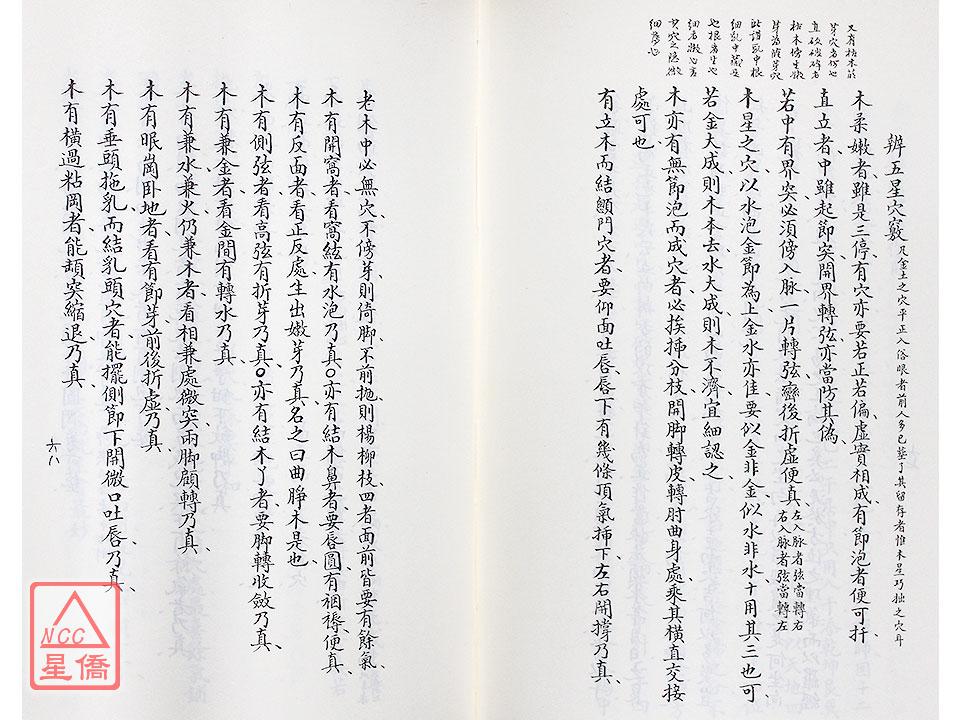 辨五星穴竅 凡金土之穴平正入俗眼者前人多已塟了其留存者惟木星巧拙之穴耳
木柔嫩者雖是三停有穴亦要若正若偏虛實相成有節泡者便可扦
直立者中雖起節突開界轉弦亦當防其偽
若中有界突必須傍入脉一片轉弦彎後折虛便真 左入脉者弦當轉右 右入脉者弦當轉左
木星之穴以水泡金節為上金水亦佳要似金非金似水非水十用其三也可
若金大成則木本去水大成則木不濟宜細認之
木亦有無節泡而成穴者必挨揷分枝開脚轉皮轉肘曲身處乘其橫直交接
處可也
有立木而結顖門穴者要仰面吐唇唇下有幾條頂氣揷下左右開撐乃真
又有枯木
芽穴者何也
直硬破碎者
枯木傍生嫩
此譜亂中根
細亂中藏
細者嫩也言
其穴之隱微
老木中必無穴不傍芽則倚脚不前拋則楊柳枝四者面前皆要有餘氣
木有開窩者看窩絃有水泡乃真○亦有結木鼻者要唇圓有裀褥便真
木有反面者看正反處生出嫩芽乃真名之曰曲脖木是也
木有側弦者看高弦有折芽乃真○亦有結木丫者要脚轉收斂乃真
木有兼金者看金間有轉水乃真
木有兼水兼火仍兼木者看相兼處微突兩脚顧轉乃真
木有眠崗臥地者看有節芽前後折虛乃真
木有垂頭拖乳而結乳頭穴者能擺側節下開微口吐唇乃真
木有橫過粘岡者能頡突縮退乃真
六八
NCC
星僑